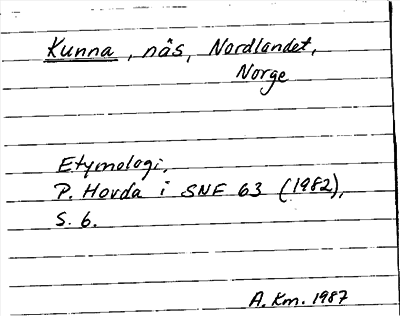 Kunna, näs, Nordlandet,
Norge
Etymologi,
P. Hovda i SNF 63 (1982),
S. 6.
A. Km. 1987